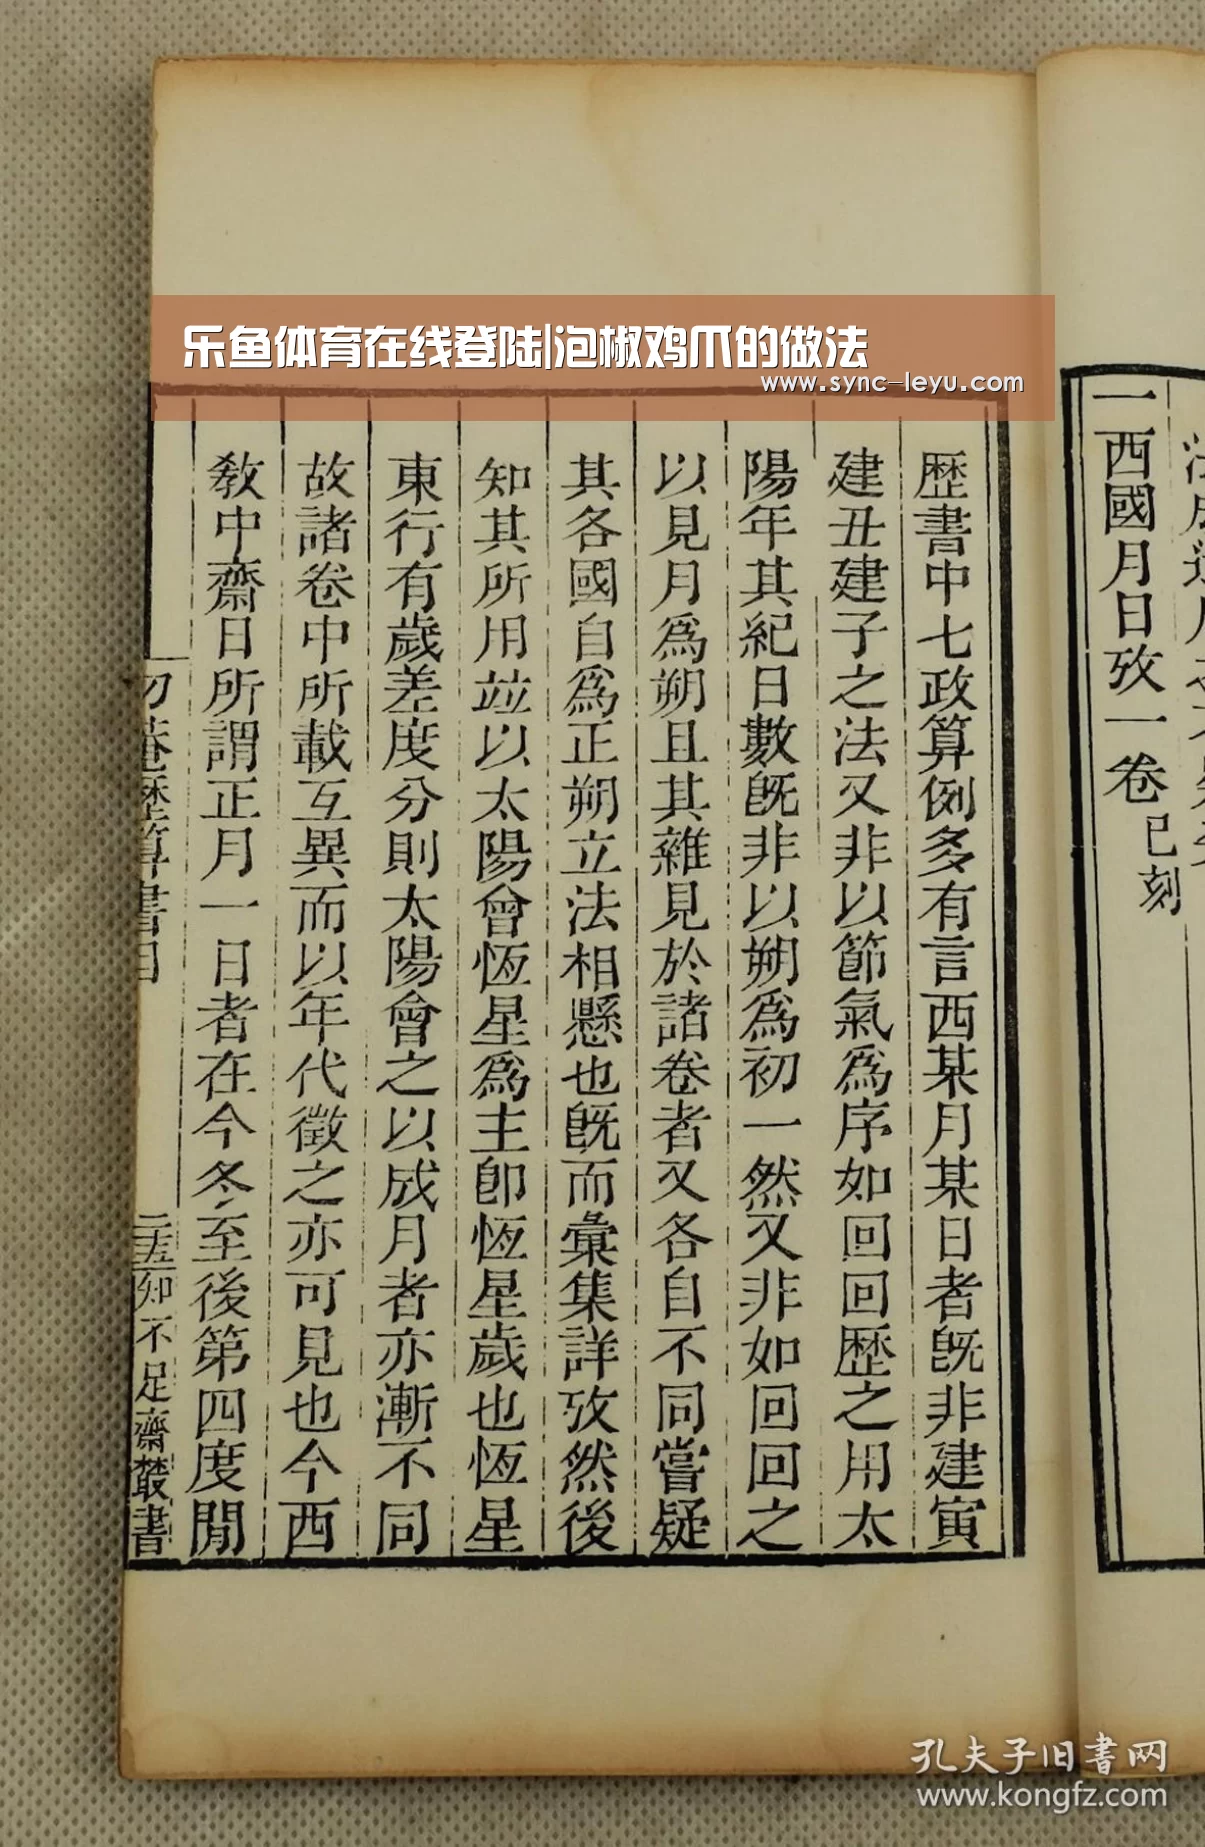 乐鱼体育在线登陆|泡椒鸡爪的做法
www.sync-leyu.com
一西國月日攷一卷已刻
歷書中七政算例多有言西某月某日者旣非建寅
建丑建子之法又非以節氣爲序如回回歷之用太
陽年其紀日數旣非以朔爲初一然又非如回回之
以見月爲朔且其雜見於諸卷者又各自不同嘗疑
其各國自爲正朔立法相懸也旣而彙集詳攷然後
知其所用竝以太陽會恆星爲主卽恆星歲也恆星
東行有歲差度分則太陽會之以成月者亦漸不同
故諸卷中所載互異而以年代徵之亦可見也今西
敎中齋日所謂正月一日者在今冬至後第四度閒
勿菴歷算書目
二五
知不足齋叢書
孔夫子旧书网
www.kongfz.com